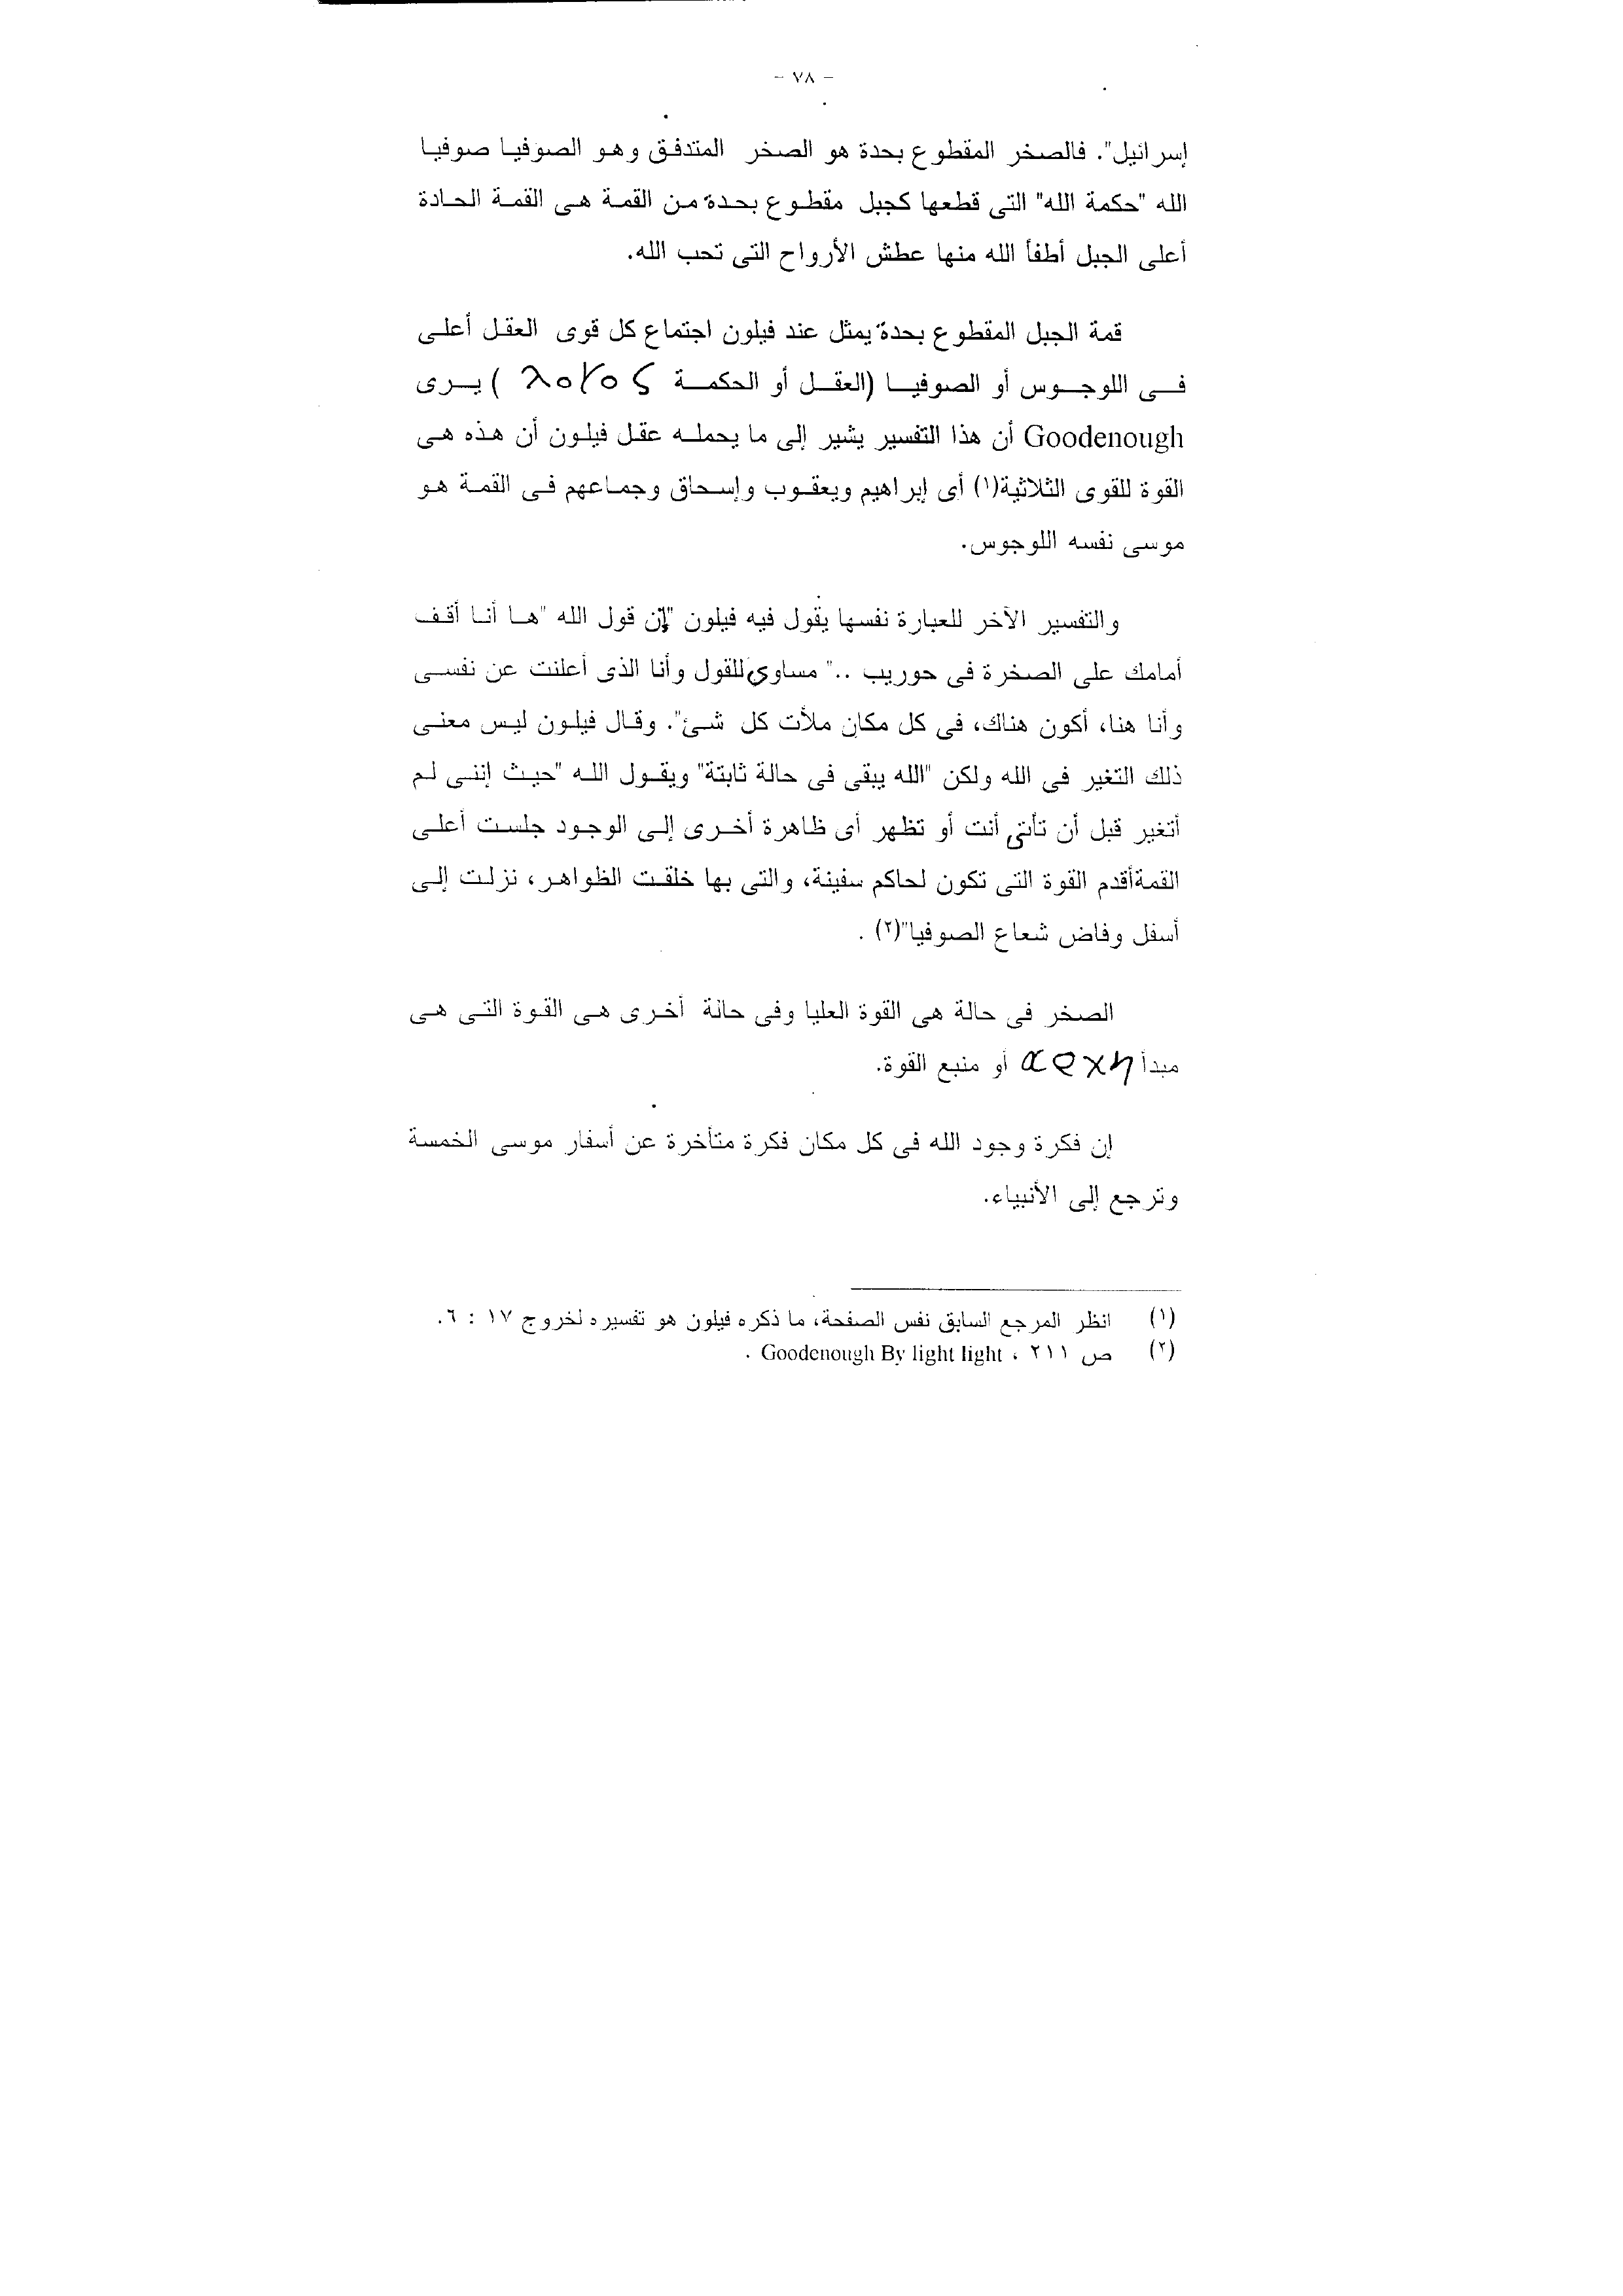 - ٧٨ -
إسرائيل". فالصخر المقطوع بحدة هو الصخر المتدفق وهو الصوفيا صوفيا
الله "حكمة الله" التى قطعها كجبل مقطوع بحدة من القمة هى القمة الحادة
أعلى الجبل أطفأ الله منها عطش الأرواح التى تحب الله.
قمة الجبل المقطوع بحدة يمثل عند فيلون اجتماع كل قوى العقل أعلى
فى اللوجوس أو الصوفيا (العقل أو الحكمة λογος ) يرى
Goodenough أن هذا التفسير يشير إلى ما يحمله عقل فيلون أن هذه هى
القوة للقوى الثلاثية(١) أى إبراهيم ويعقوب وإسحاق وجماعهم فى القمة هو
موسى نفسه اللوجوس.
والتفسير الآخر للعبارة نفسها يقول فيه فيلون "إن قول الله "ها أنا أقف
أمامك على الصخرة فى حوريب .." مساوي للقول وأنا الذى أعلنت عن نفسى
وأنا هنا، أكون هناك، فى كل مكان ملأت كل شئ". وقال فيلون ليس معنى
ذلك التغير فى الله ولكن "الله يبقى فى حالة ثابتة" ويقول الله "حيث إننى لم
أتغير قبل أن تأتي أنت أو تظهر أى ظاهرة أخرى إلى الوجود جلست أعلى
القمة أقدم القوة التى تكون لحاكم سفينة، والتى بها خلقت الظواهر، نزلت إلى
أسفل وفاض شعاع الصوفيا"(٢) .
الصخر فى حالة هى القوة العليا وفى حالة أخرى هى القوة التى هى
مبدأ αρχη أو منبع القوة.
إن فكرة وجود الله فى كل مكان فكرة متأخرة عن أسفار موسى الخمسة
وترجع إلى الأنبياء.
(١) انظر المرجع السابق نفس الصفحة، ما ذكره فيلون هو تفسيره لخروج ١٧ : ٦.
(٢) ص ٢١١ ، Goodenough By light light .